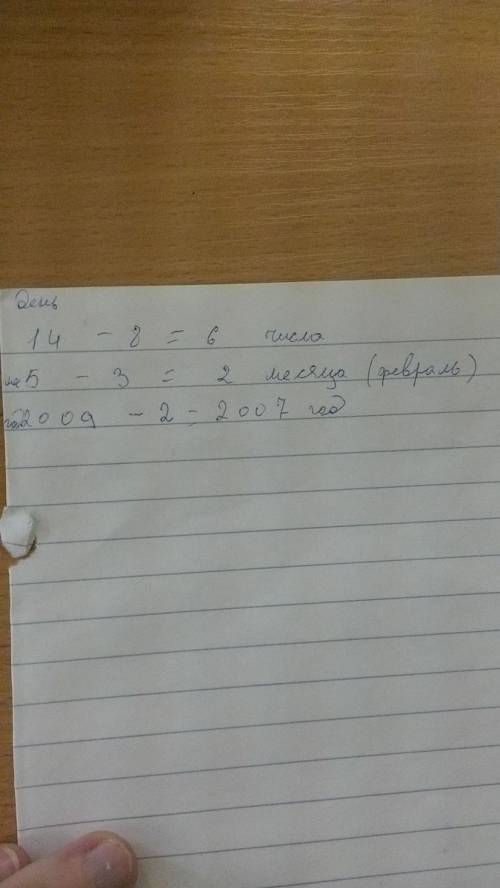 День
14 - 8 = 6 числа
ме 5 - 3 = 2 месяца (февраль)
год 2009 - 2 = 2007 год